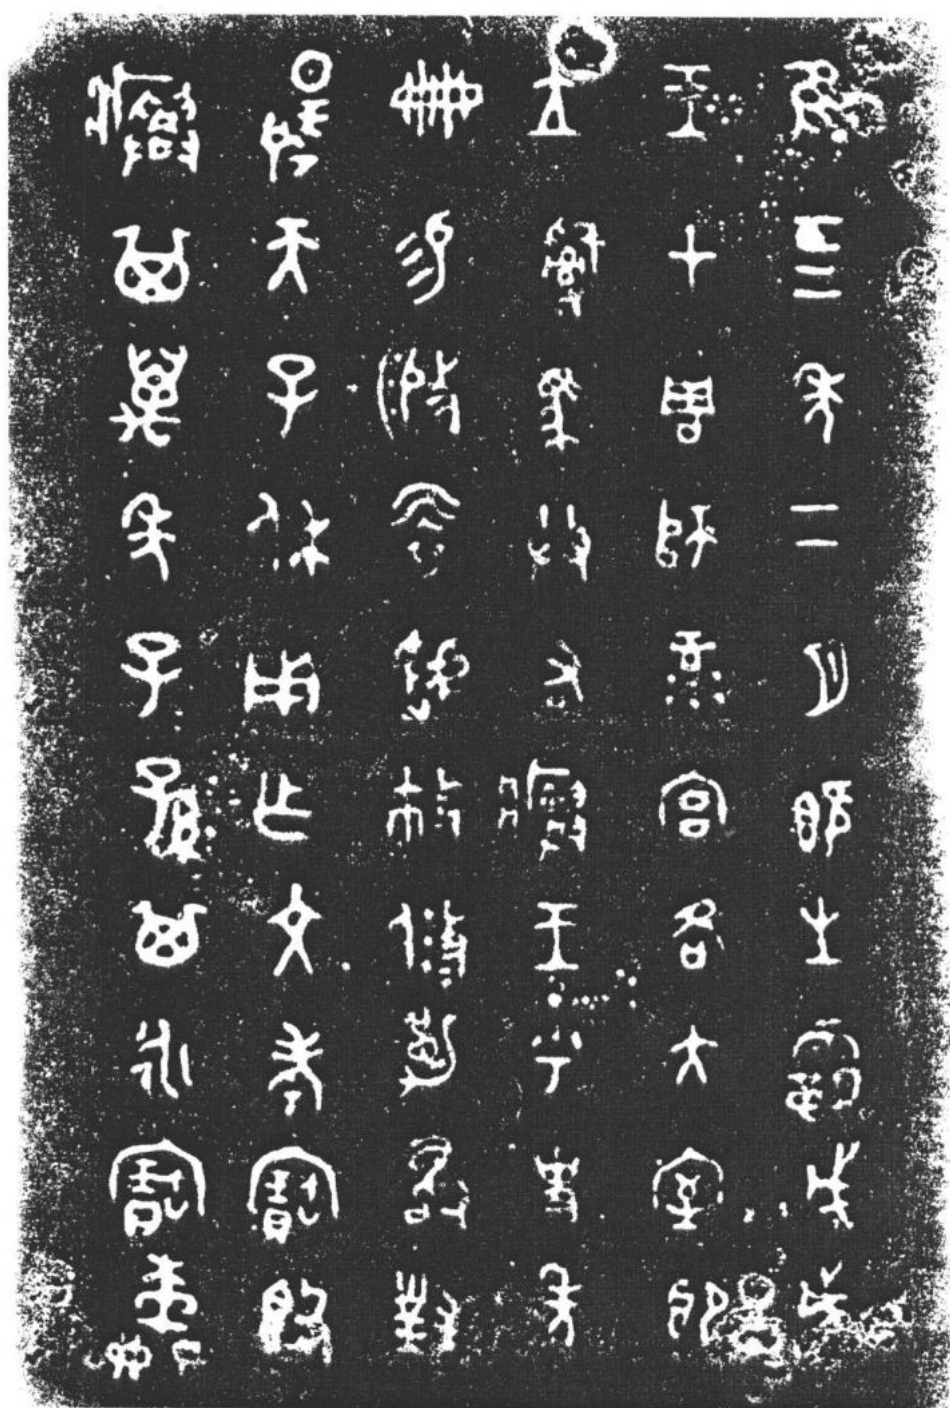 隹四年二月既生霸戊戌
王才周師彔宮各大室即
立𤔲馬共右𤼈王乎史年
冊易攸勒敢對
揚天子休用乍文考寶𣪘
𤼈其萬年子孫其永寶